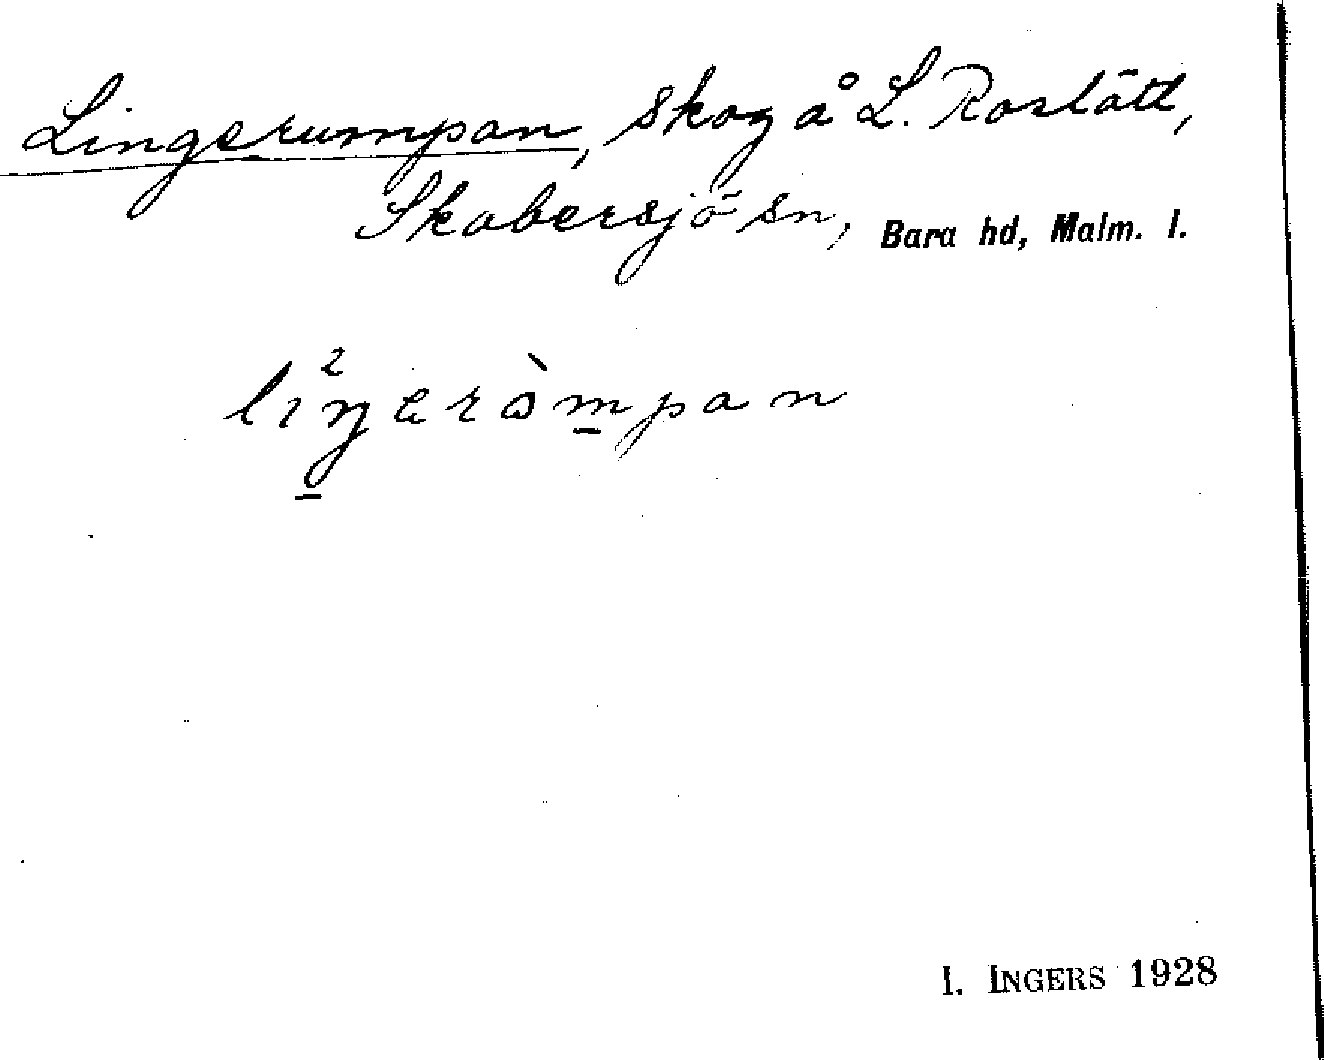 Lingerumpan, skog å L. Roslätt,
Skabersjö sn, Bara hd, Malm. l.
I. INGERS 1928